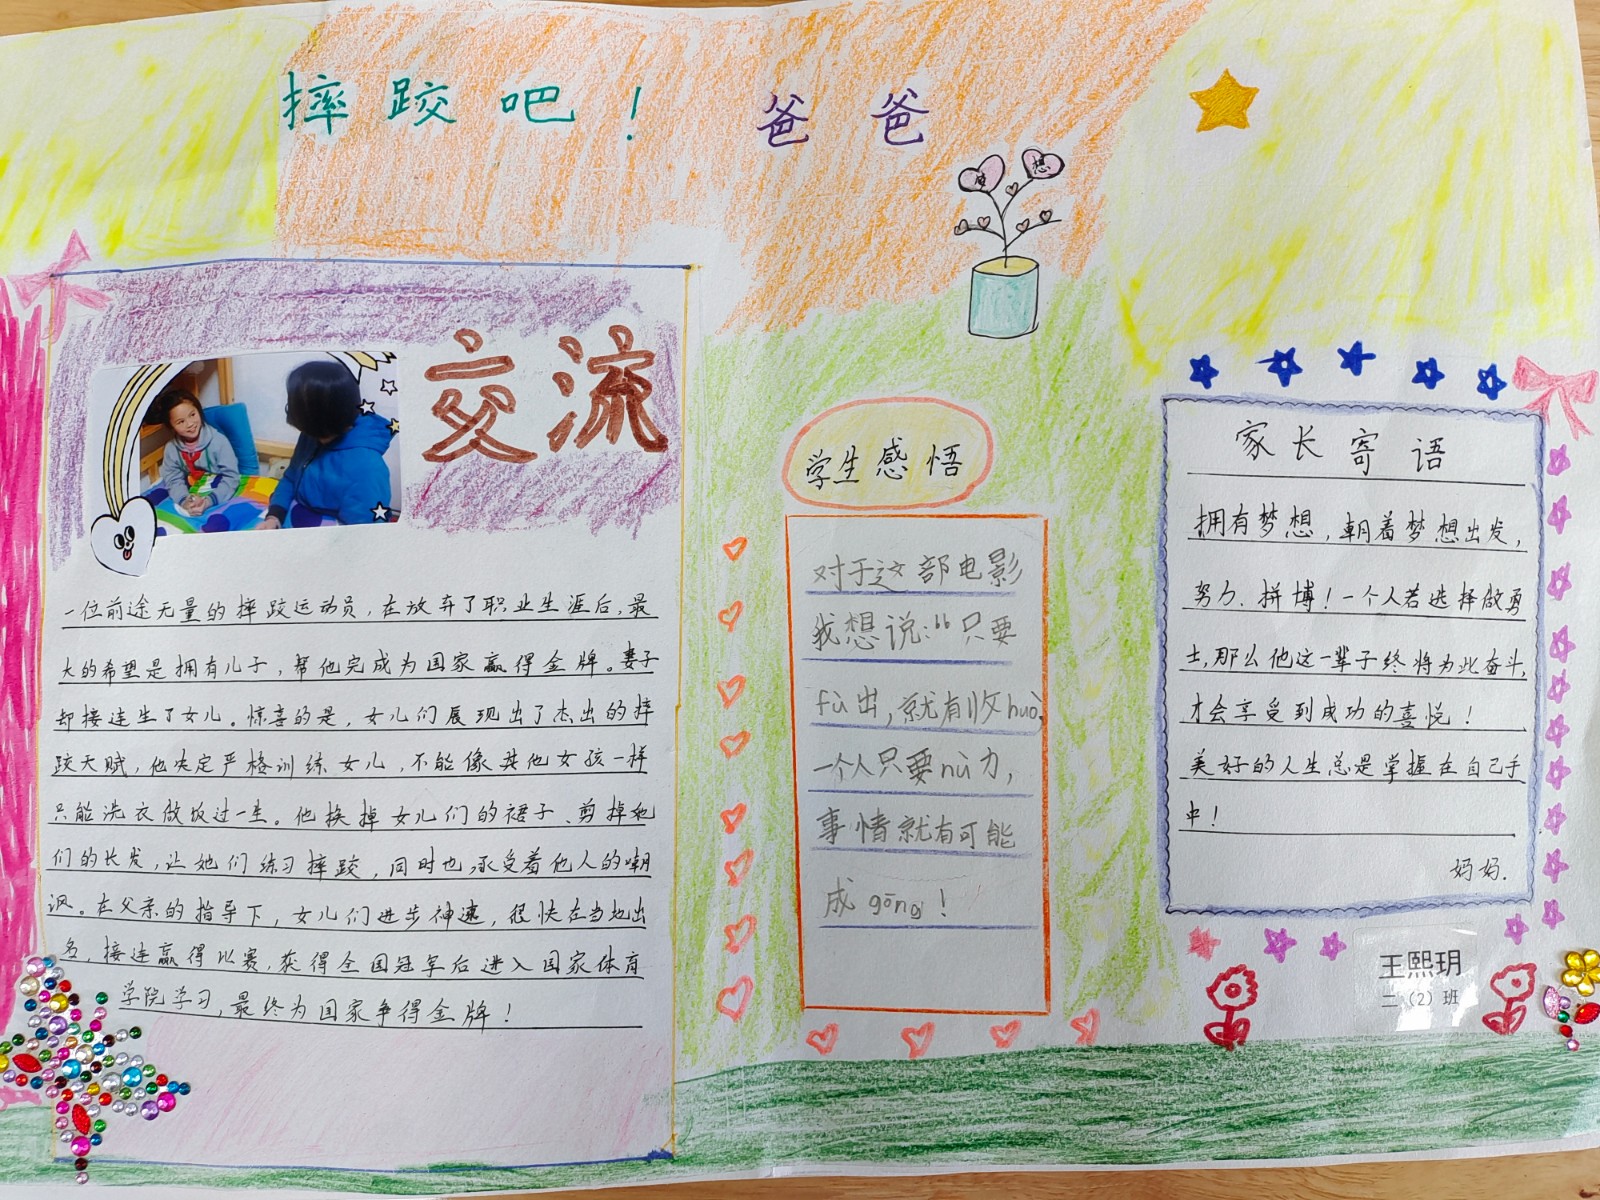 摔跤吧！ 爸爸
想
交流
一位前途无量的摔跤运动员，在放弃了职业生涯后，最
大的希望是拥有儿子，帮他完成为国家赢得金牌。妻子
却接连生了女儿。惊喜的是，女儿们展现出了杰出的摔
跤天赋，他决定严格训练女儿，不能像其他女孩一样
只能洗衣做饭过一生。他换掉女儿们的裙子、剪掉她
们的长发，让她们练习摔跤，同时也承受着他人的嘲
讽。在父亲的指导下，女儿们进步神速，很快在当地出
名，接连赢得比赛，获得全国冠军后进入国家体育
学院学习，最终为国家争得金牌！
学生感悟
对于这部电影
我想说：“只要
fù出，就有收huò，
一个人只要nǔ力，
事情就有可能
成gōng！
家长寄语
拥有梦想，朝着梦想出发，
努力、拼博！一个人若选择做勇
士，那么他这一辈子终将为此奋斗，
才会享受到成功的喜悦！
美好的人生总是掌握在自己手
中！
妈妈.
王熙玥
二（2）班